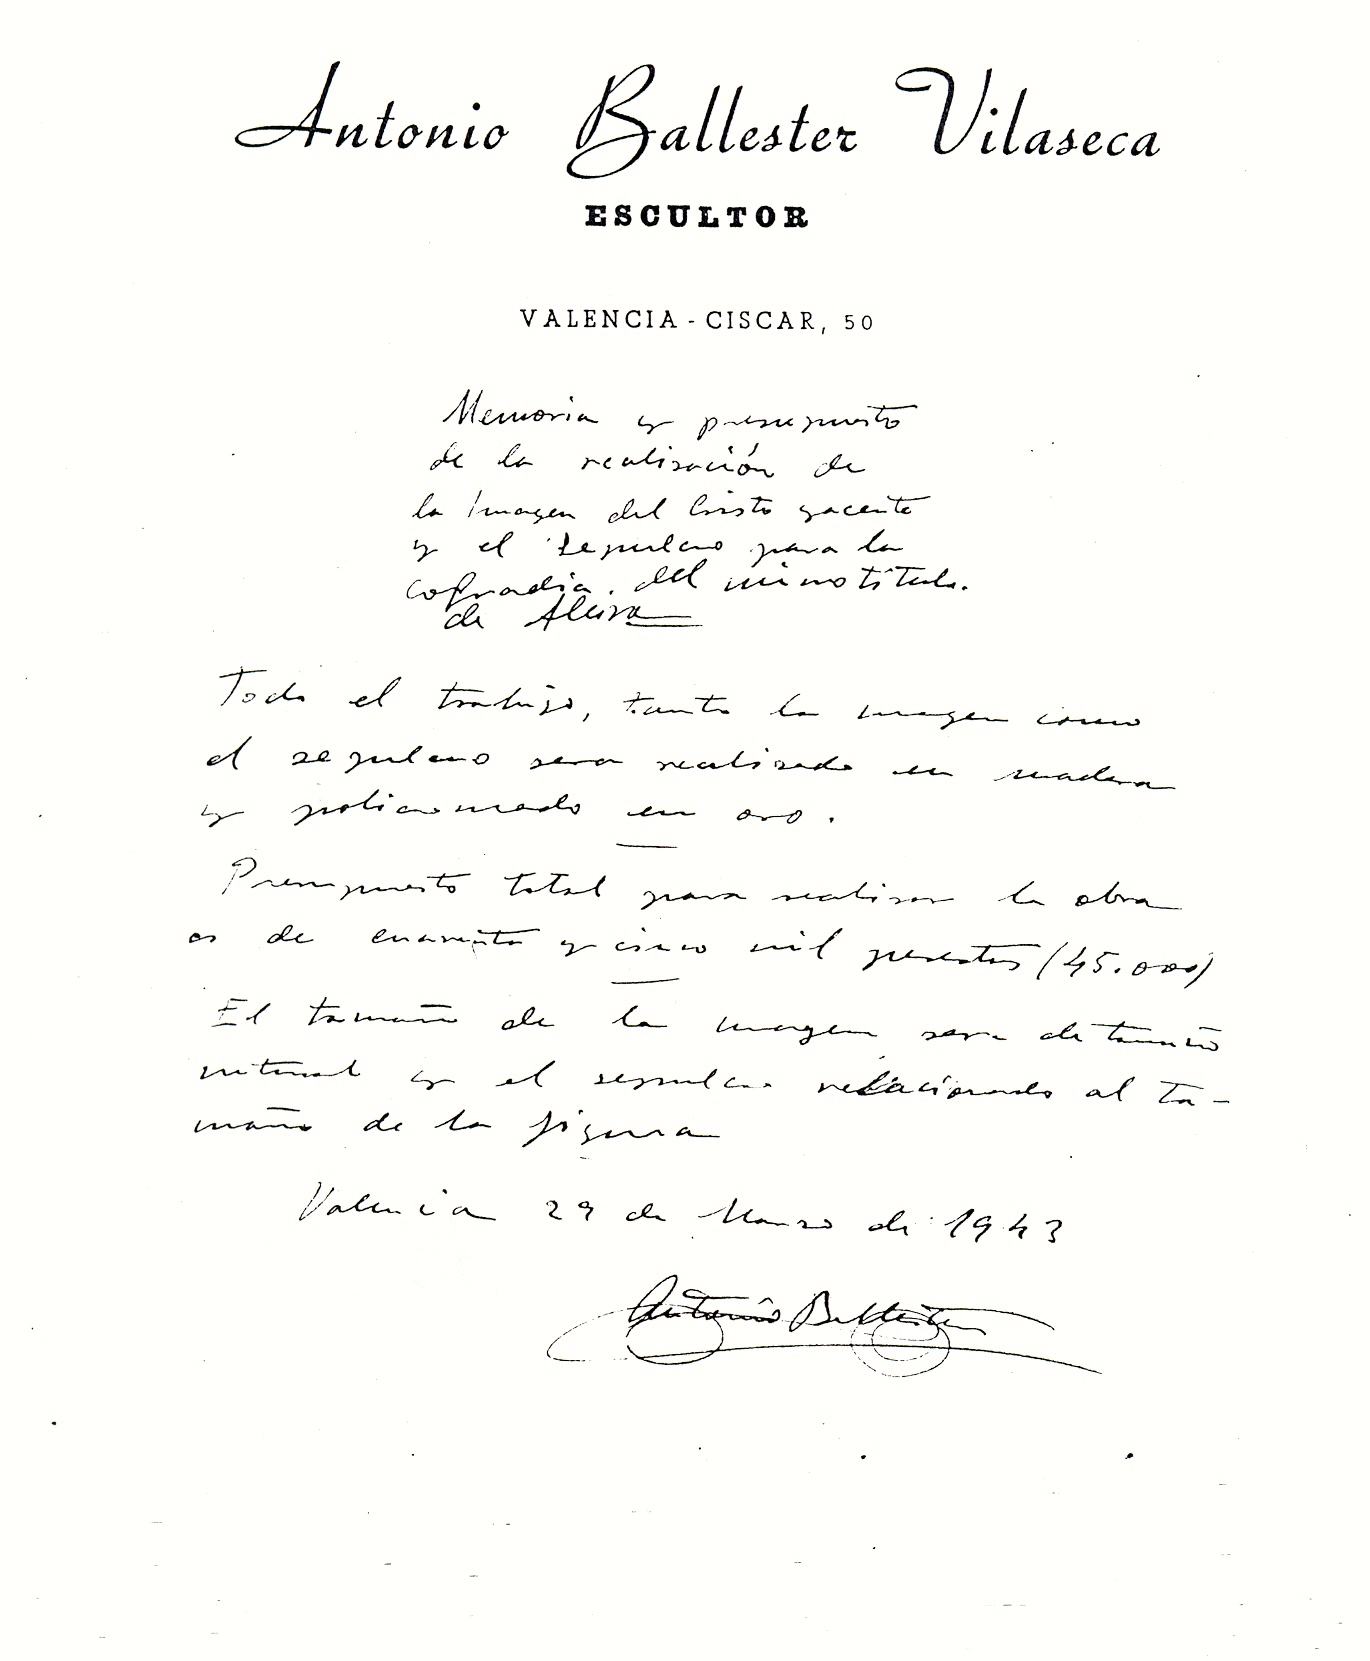 Antonio Ballester Vilaseca
ESCULTOR
VALENCIA - CISCAR, 50
Memoria y presupuesto
de la realisación de
la Imagen del Cristo yacente
y el sepulcro para la
cofradia. del mismo titulo.
de Alcira
Todo el trabajo, tanto la imagen como
el sepulcro sera realisado en madera
y policromado en oro.
Presupuesto total para realisar la obra
es de cuarenta y cinco mil pesetas (45.000)
El tamaño de la imagen sera de tamaño
natural y el sepulcro relacionado al ta-
maño de la figura
Valencia 29 de Marzo de 1943
Antonio Ballester